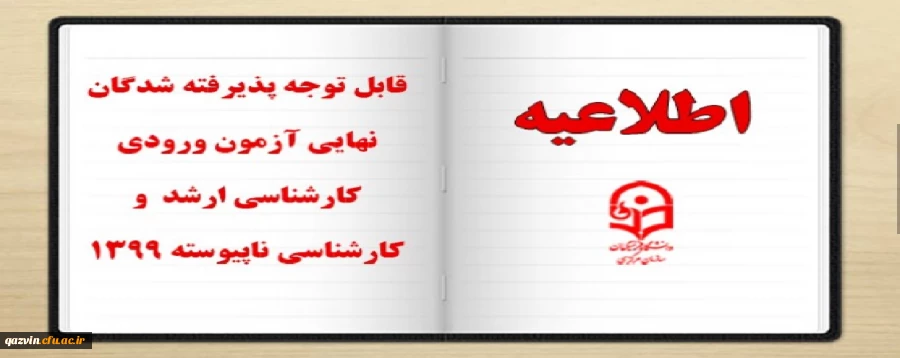 اطلاعیه
دانشگاه فرهنگیان
سازمان مرکزی
قابل توجه پذیرفته شدگان
نهایی آزمون ورودی
کارشناسی ارشد و
کارشناسی ناپیوسته ۱۳۹۹
qazvin.cfu.ac.ir